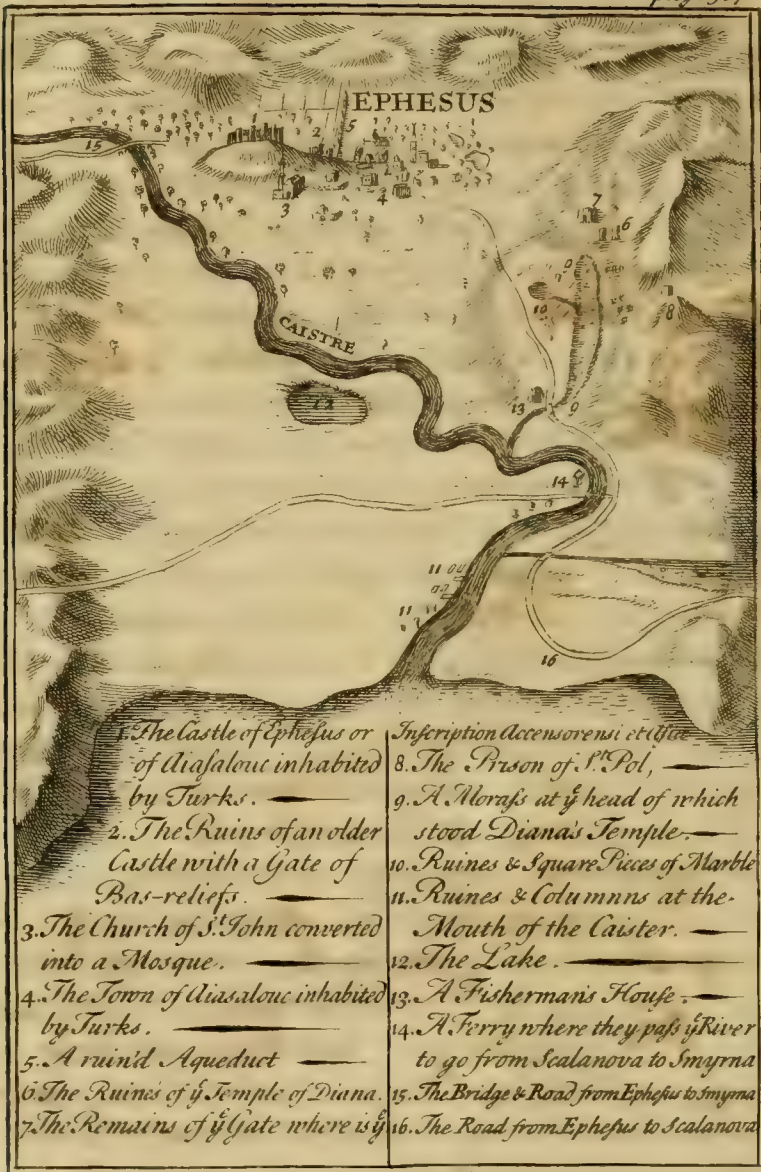 EPHESUS
1
2
5
15
3
4
7
6
10
8
CAISTRE
12
13
9
14
11
11
16
1. The Castle of Epheſus or
of Aiaſalouc inhabited
by Turks.
2. The Ruins of an older
Castle with a Gate of
Bas-reliefs.
3. The Church of S.ᵗ John converted
into a Mosque.
4. The Town of Aiasalouc inhabited
by Turks.
5. A ruin'd Aqueduct
6. The Ruines of yᵉ Temple of Diana.
7. The Remains of yᵉ Gate where is yᵉ
Inſcription Accensorensi et
8. The Prison of S.ᵗ Pol,
9. A Moraſs at yᵉ head of which
stood Diana's Temple.
10. Ruines & Square Pieces of Marble
11. Ruines & Columnns at the
Mouth of the Caister.
12. The Lake.
13. A Fisherman's Houſe.
14. A Ferry where they paſs yᵉ River
to go from Scalanova to Smyrna
15. The Bridge & Road from Epheſus to Smyrna
16. The Road from Epheſus to Scalanova